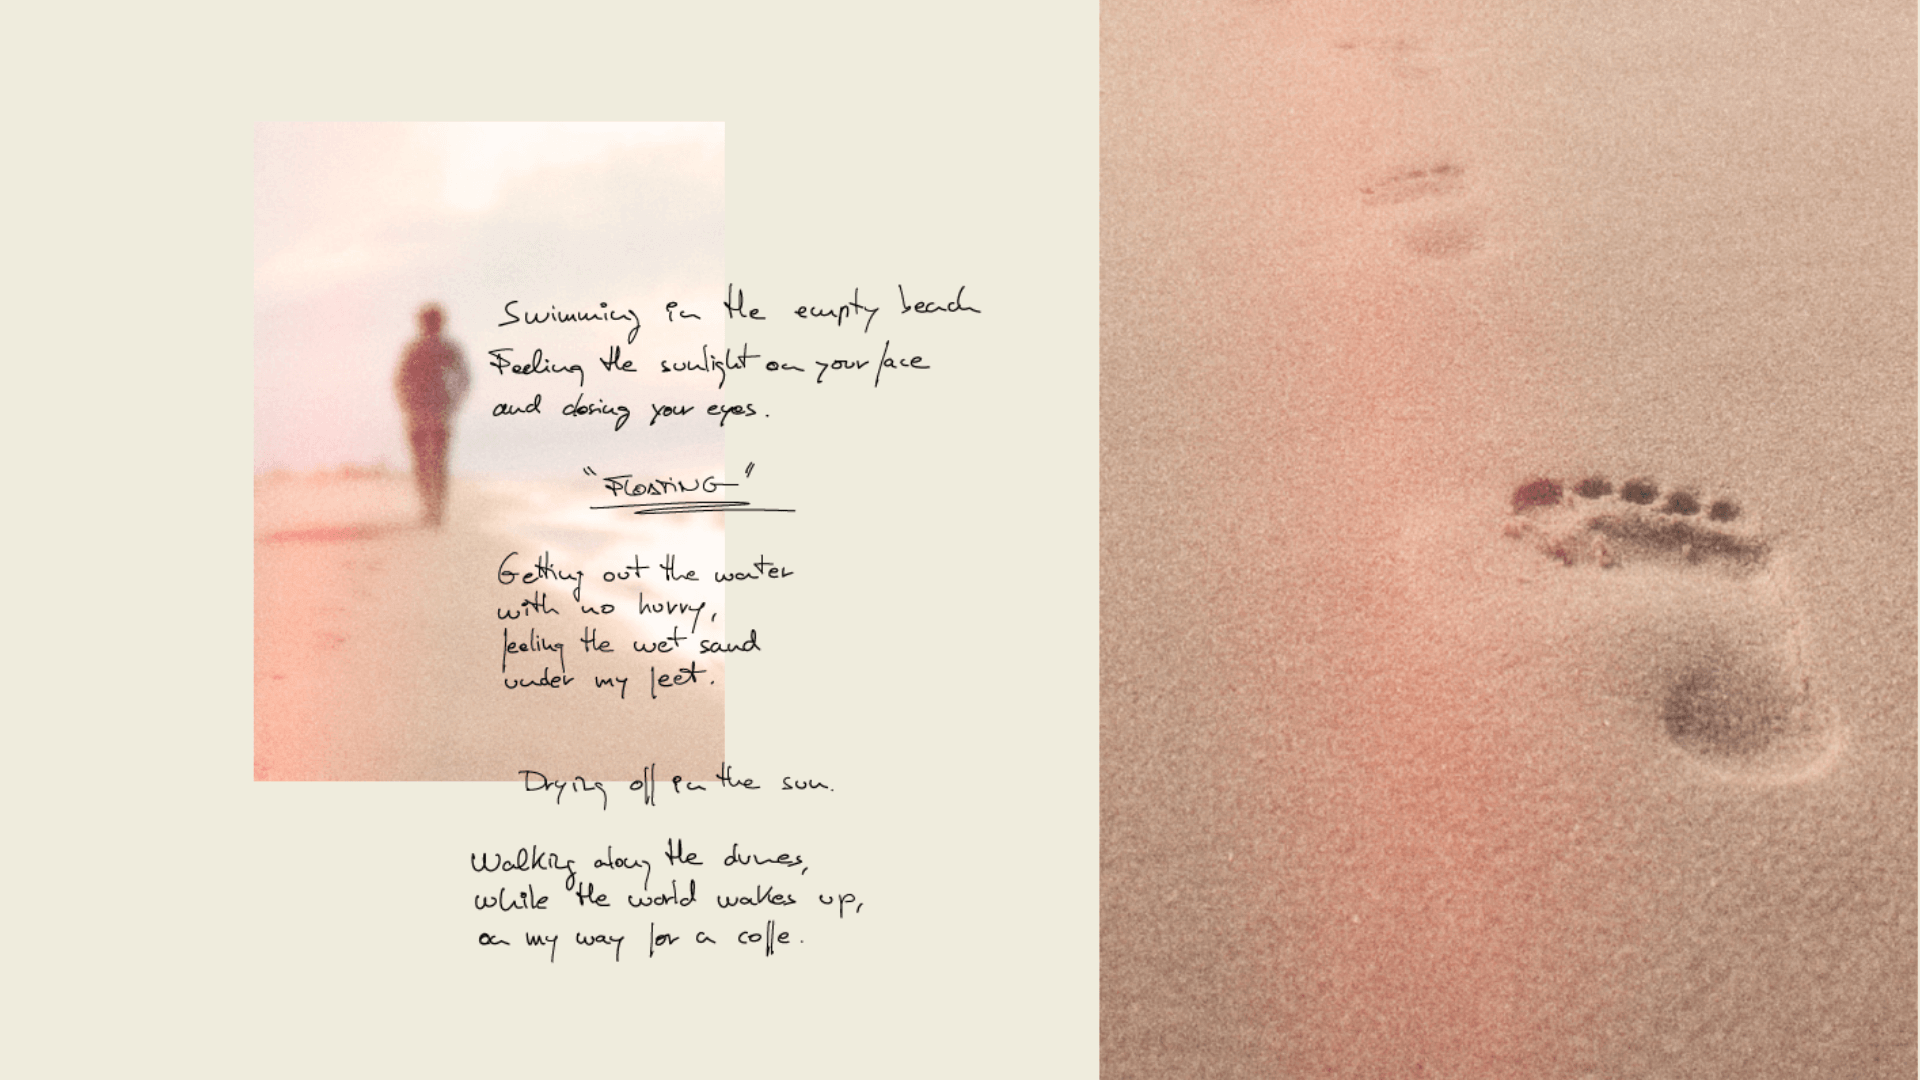 Swimming in the empty beach
Feeling the sunlight on your face
and closing your eyes.
"FLOATING"
Getting out the water
with no hurry,
feeling the wet sand
under my feet.
Drying off in the sun.
Walking along the dunes,
while the world wakes up,
on my way for a coffe.